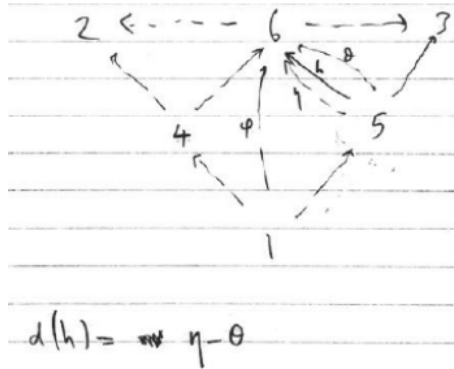 2 6 3
θ
h
η
4 φ 5
1
d(h) = η - θ